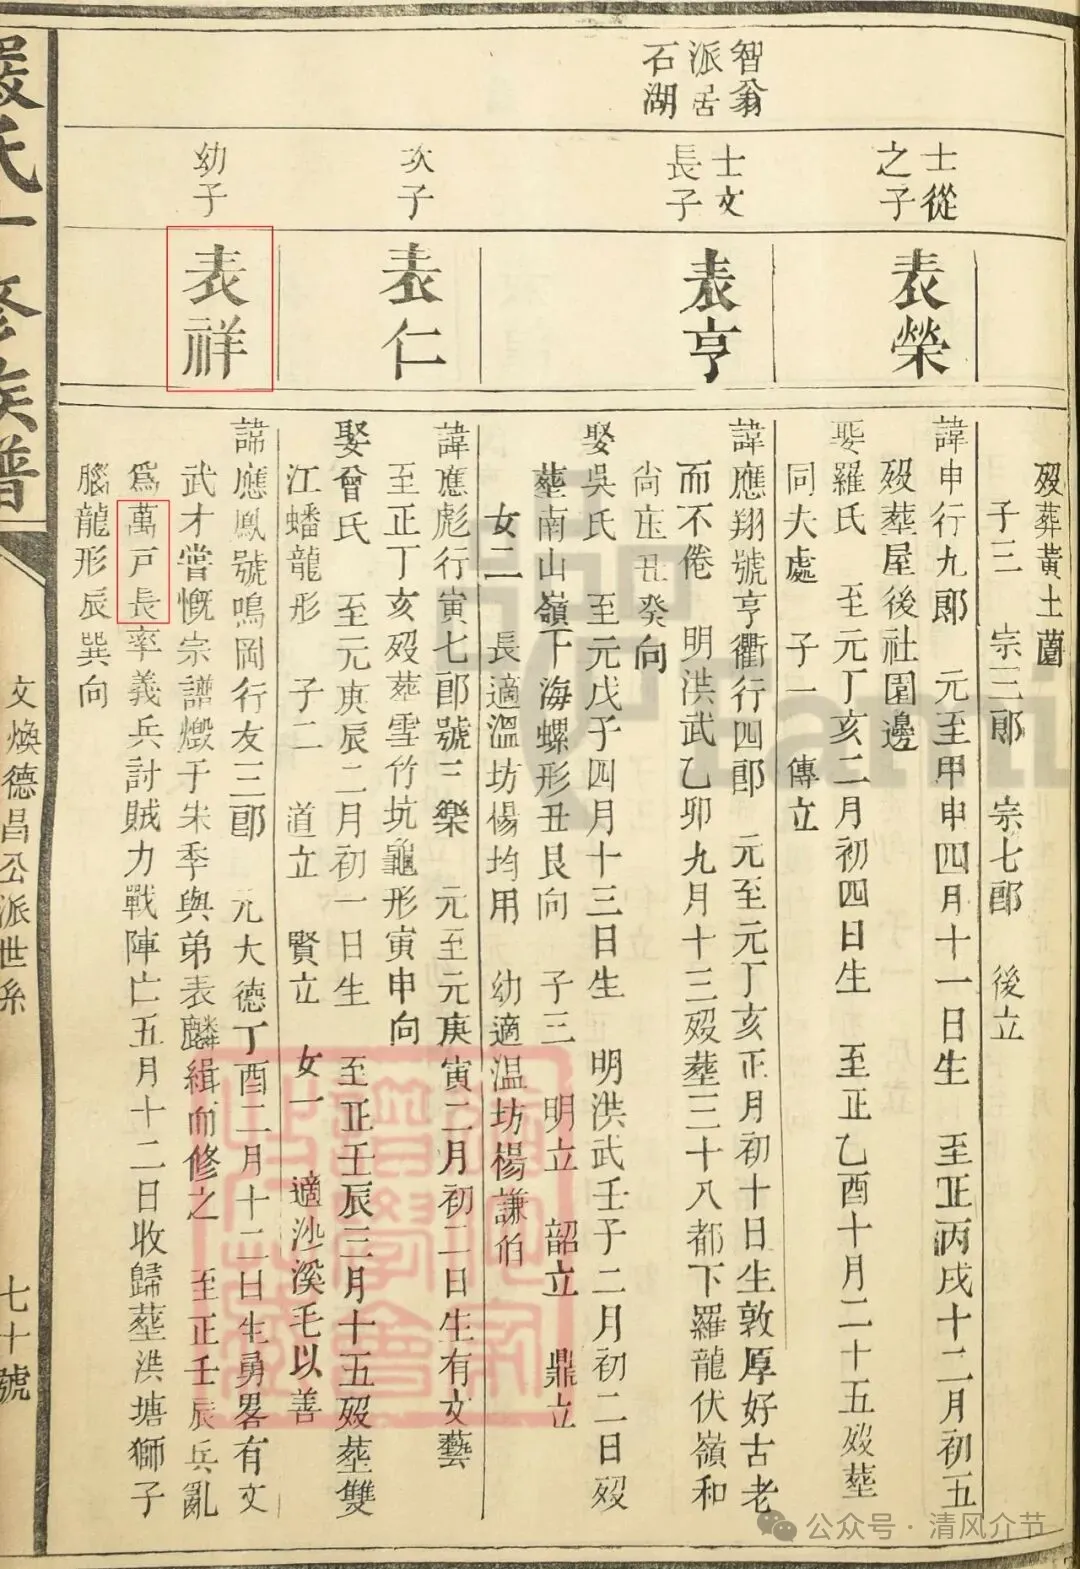 智翁
派居
石湖
士從
之子
士文
長子
次子
幼子
表榮
表亨
表仁
表祥
歿葬黃土薗
子三 宗三郎 宗七郎 後立
諱申行九郎 元至甲申四月十一日生 至正丙戌十二月初五
歿葬屋後社園邊
娶羅氏 至元丁亥二月初四日生 至正乙酉十月二十五歿葬
同夫處 子一 傳立
諱應翔號亨衢行四郎 元至元丁亥正月初十日生敦厚好古老
而不倦 明洪武乙卯九月十三歿葬三十八都下羅龍伏嶺和
尚庄丑癸向
娶吳氏 至元戊子四月十三日生 明洪武壬子二月初二日歿
葬南山嶺下海螺形丑艮向 子三 明立 韶立 鼎立
女二 長適溫坊楊均用 幼適溫坊楊謙伯
諱應彪行寅七郎號三樂 元至元庚寅二月初二日生有文藝
至正丁亥歿葬雪竹坑龜形寅申向
娶曾氏 至元庚辰二月初一日生 至正壬辰三月十五歿葬雙
江蟠龍形 子二 道立 賢立 女一 適沙溪毛以善
諱應鳳號鳴岡行友三郎 元大德丁酉二月十二日生勇畧有文
武才嘗慨宗譜燬于宋季與弟表麟緝而修之 至正壬辰兵亂
爲萬戸長率義兵討賊力戰陣亡五月十二日收歸葬洪塘獅子
腦龍形辰巽向
嚴氏 修族譜
文煥德昌公派世系
七十號
公众号·清风介节